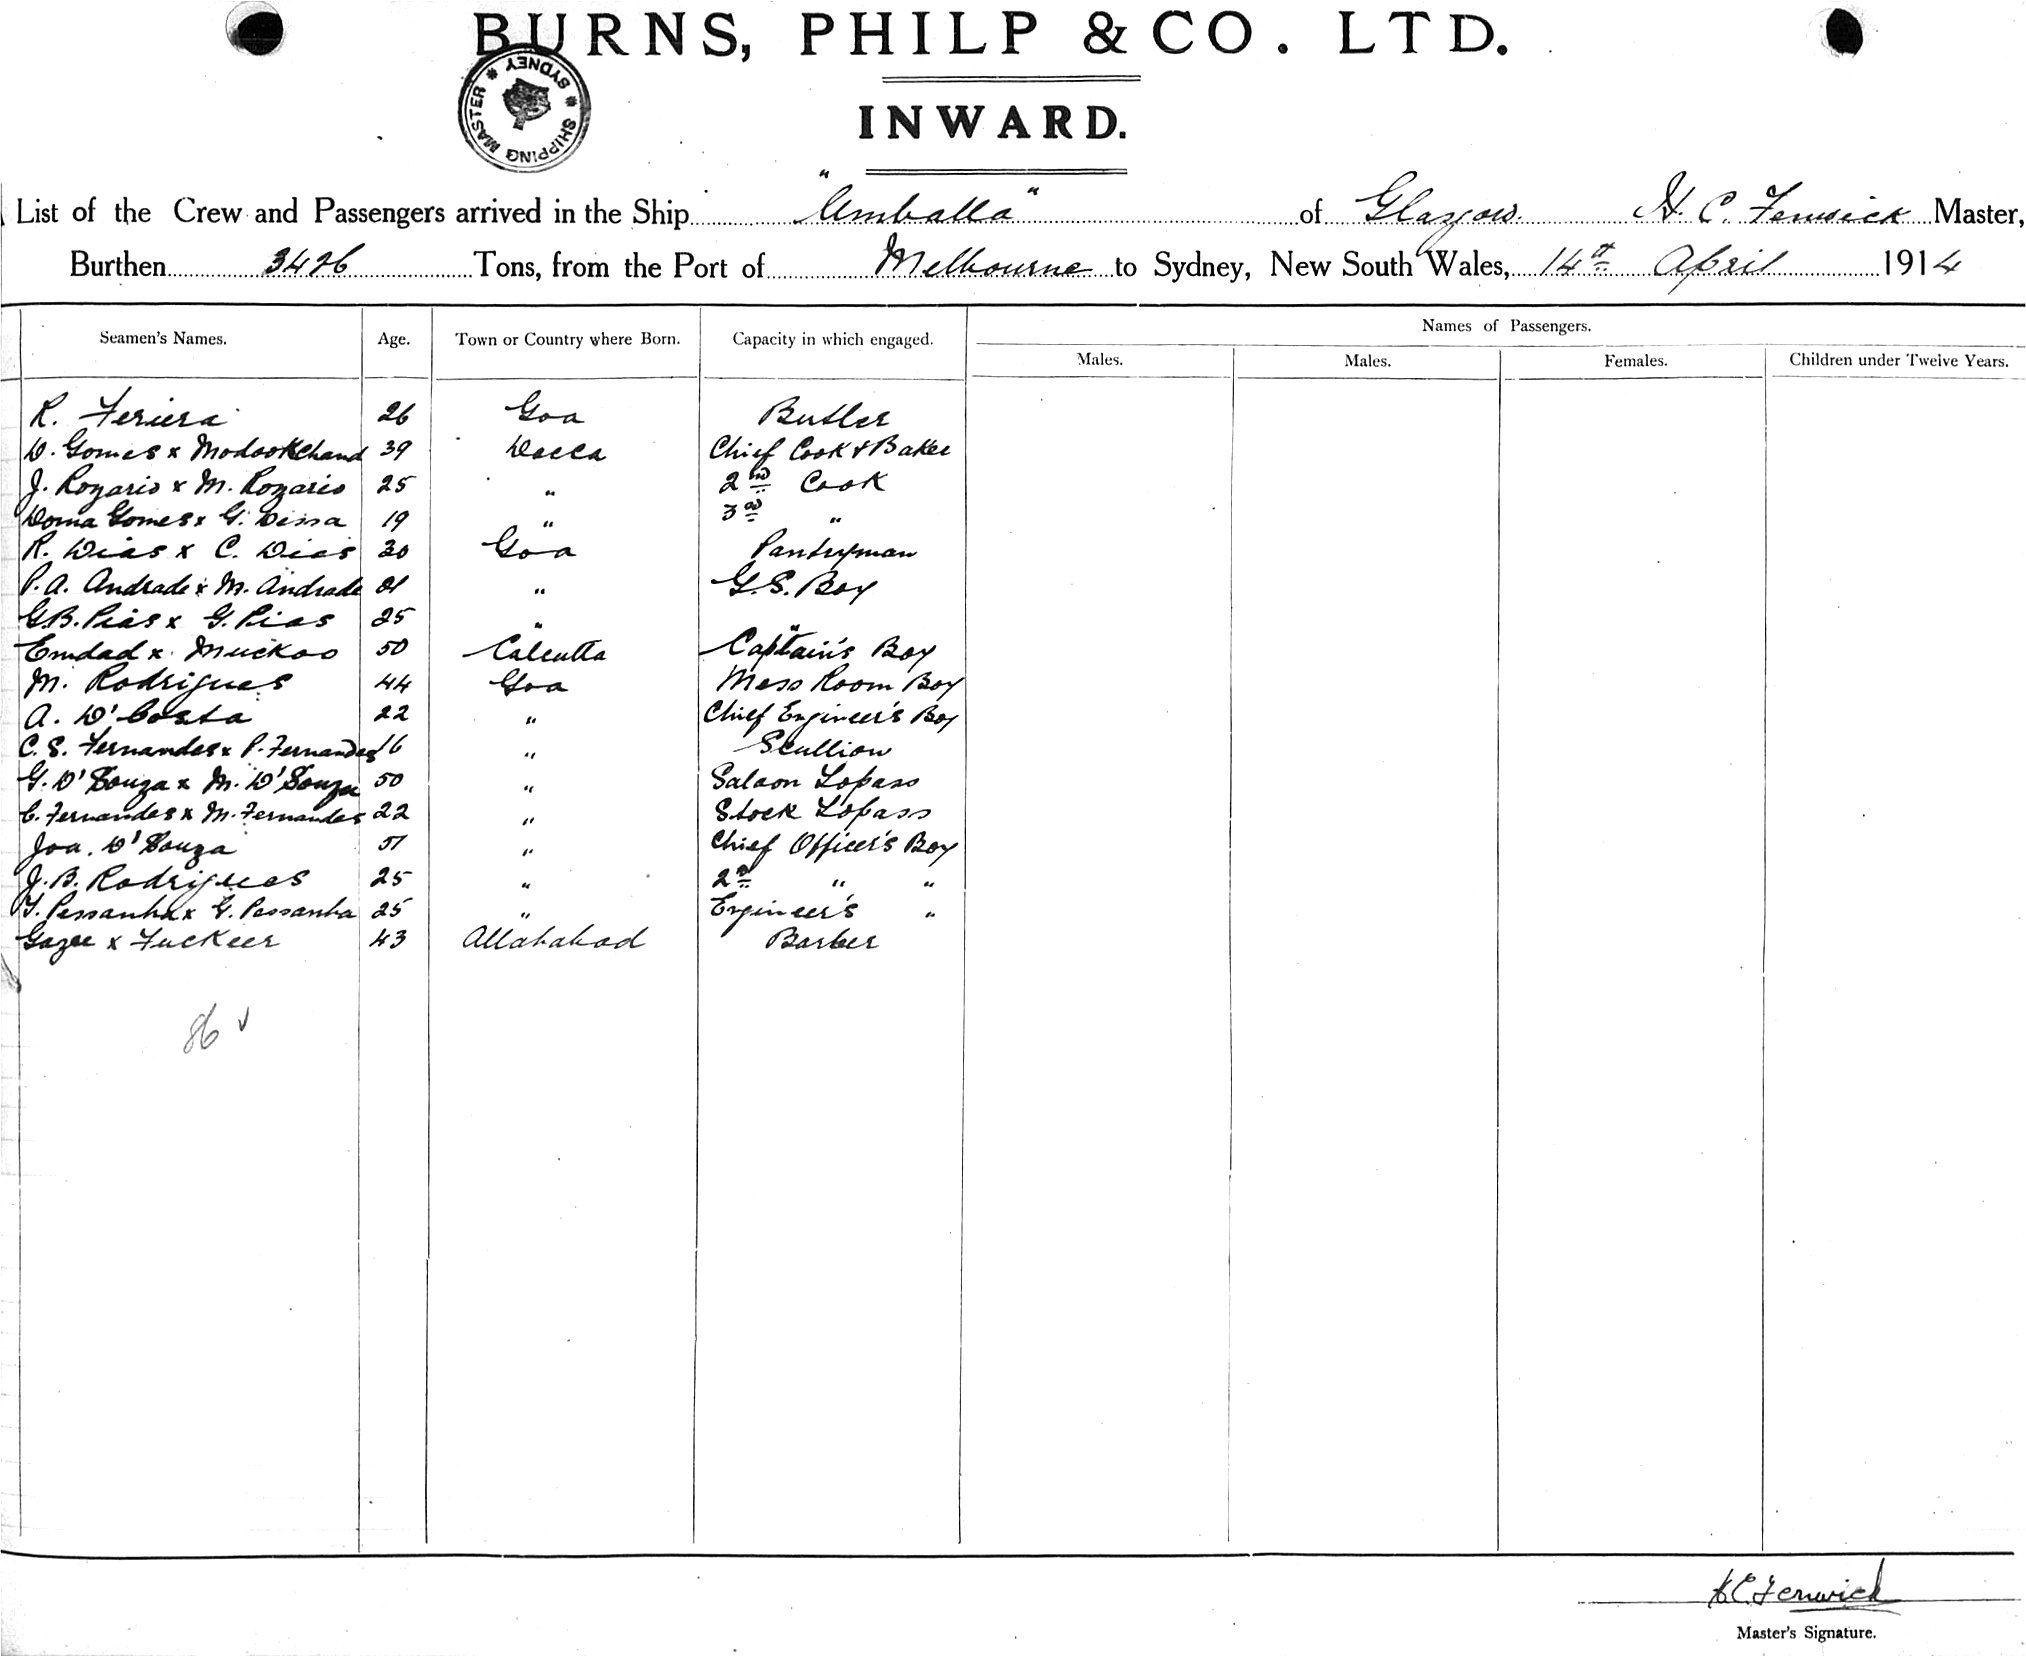 BURNS, PHILP & CO. LTD.
SHIPPING MASTER * SYDNEY *
INWARD.
List of the Crew and Passengers arrived in the Ship "Umballa" of Glasgow H. C. Fenwick Master,
Burthen 3426 Tons, from the Port of Melbourne to Sydney, New South Wales, 14th April 1914
Names of Passengers.
Seamen's Names. Age. Town or Country where Born. Capacity in which engaged.
Males. Males. Females. Children under Twelve Years.
R. Feriera 26 Goa Butler
D. Gomes x Modookchand 39 Dacca Chief Cook & Baker
J. Rozario x M. Rozario 25 " 2nd Cook
Doma Gomes x G. Dessa 19 " 3rd "
R. Dias x C. Dias 30 Goa Pantryman
P. A. Andrade x M. Andrade 21 " G. S. Boy
G. B. Pias x G. Pias 25 " "
Emdad x Muckoo 50 Calcutta Captain's Boy
M. Rodrigues 44 Goa Mess Room Boy
A. D'Costa 22 " Chief Engineer's Boy
C. S. Fernandes x P. Fernandes 16 " Scullion
G. D'Souza x M. D'Souza 50 " Saloon Topass
C. Fernandes x M. Fernandes 22 " Stock Topass
Joa. D'Souza 51 " Chief Officer's Boy
J. B. Rodrigues 25 " 2nd " "
T. Pessanha x G. Pessanha 25 " Engineer's "
Gazee x Fuckeer 43 Allahabad Barber
86 ✓
H C Fenwick
Master's Signature.